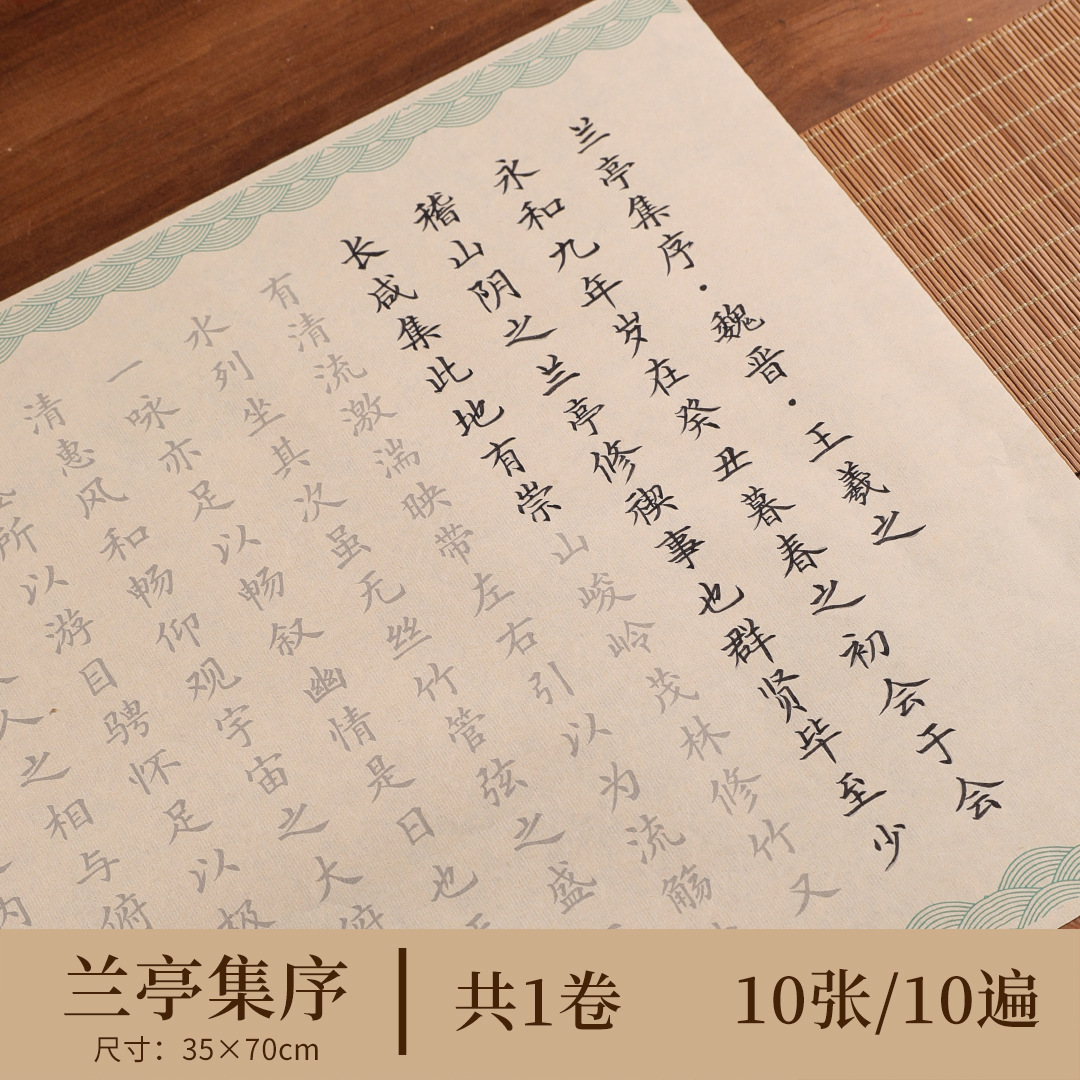 兰亭集序·魏晋·王羲之
永和九年岁在癸丑暮春之初会于会
稽山阴之兰亭修禊事也群贤毕至少
长咸集此地有崇山峻岭茂林修竹又
有清流激湍映带左右引以为流觞
水列坐其次虽无丝竹管弦之盛
一咏亦足以畅叙幽情是日也
清惠风和畅仰观宇宙之大俯
所以游目骋怀足以极
人之相与俯
兰亭集序
尺寸：35×70cm
共1卷
10张/10遍